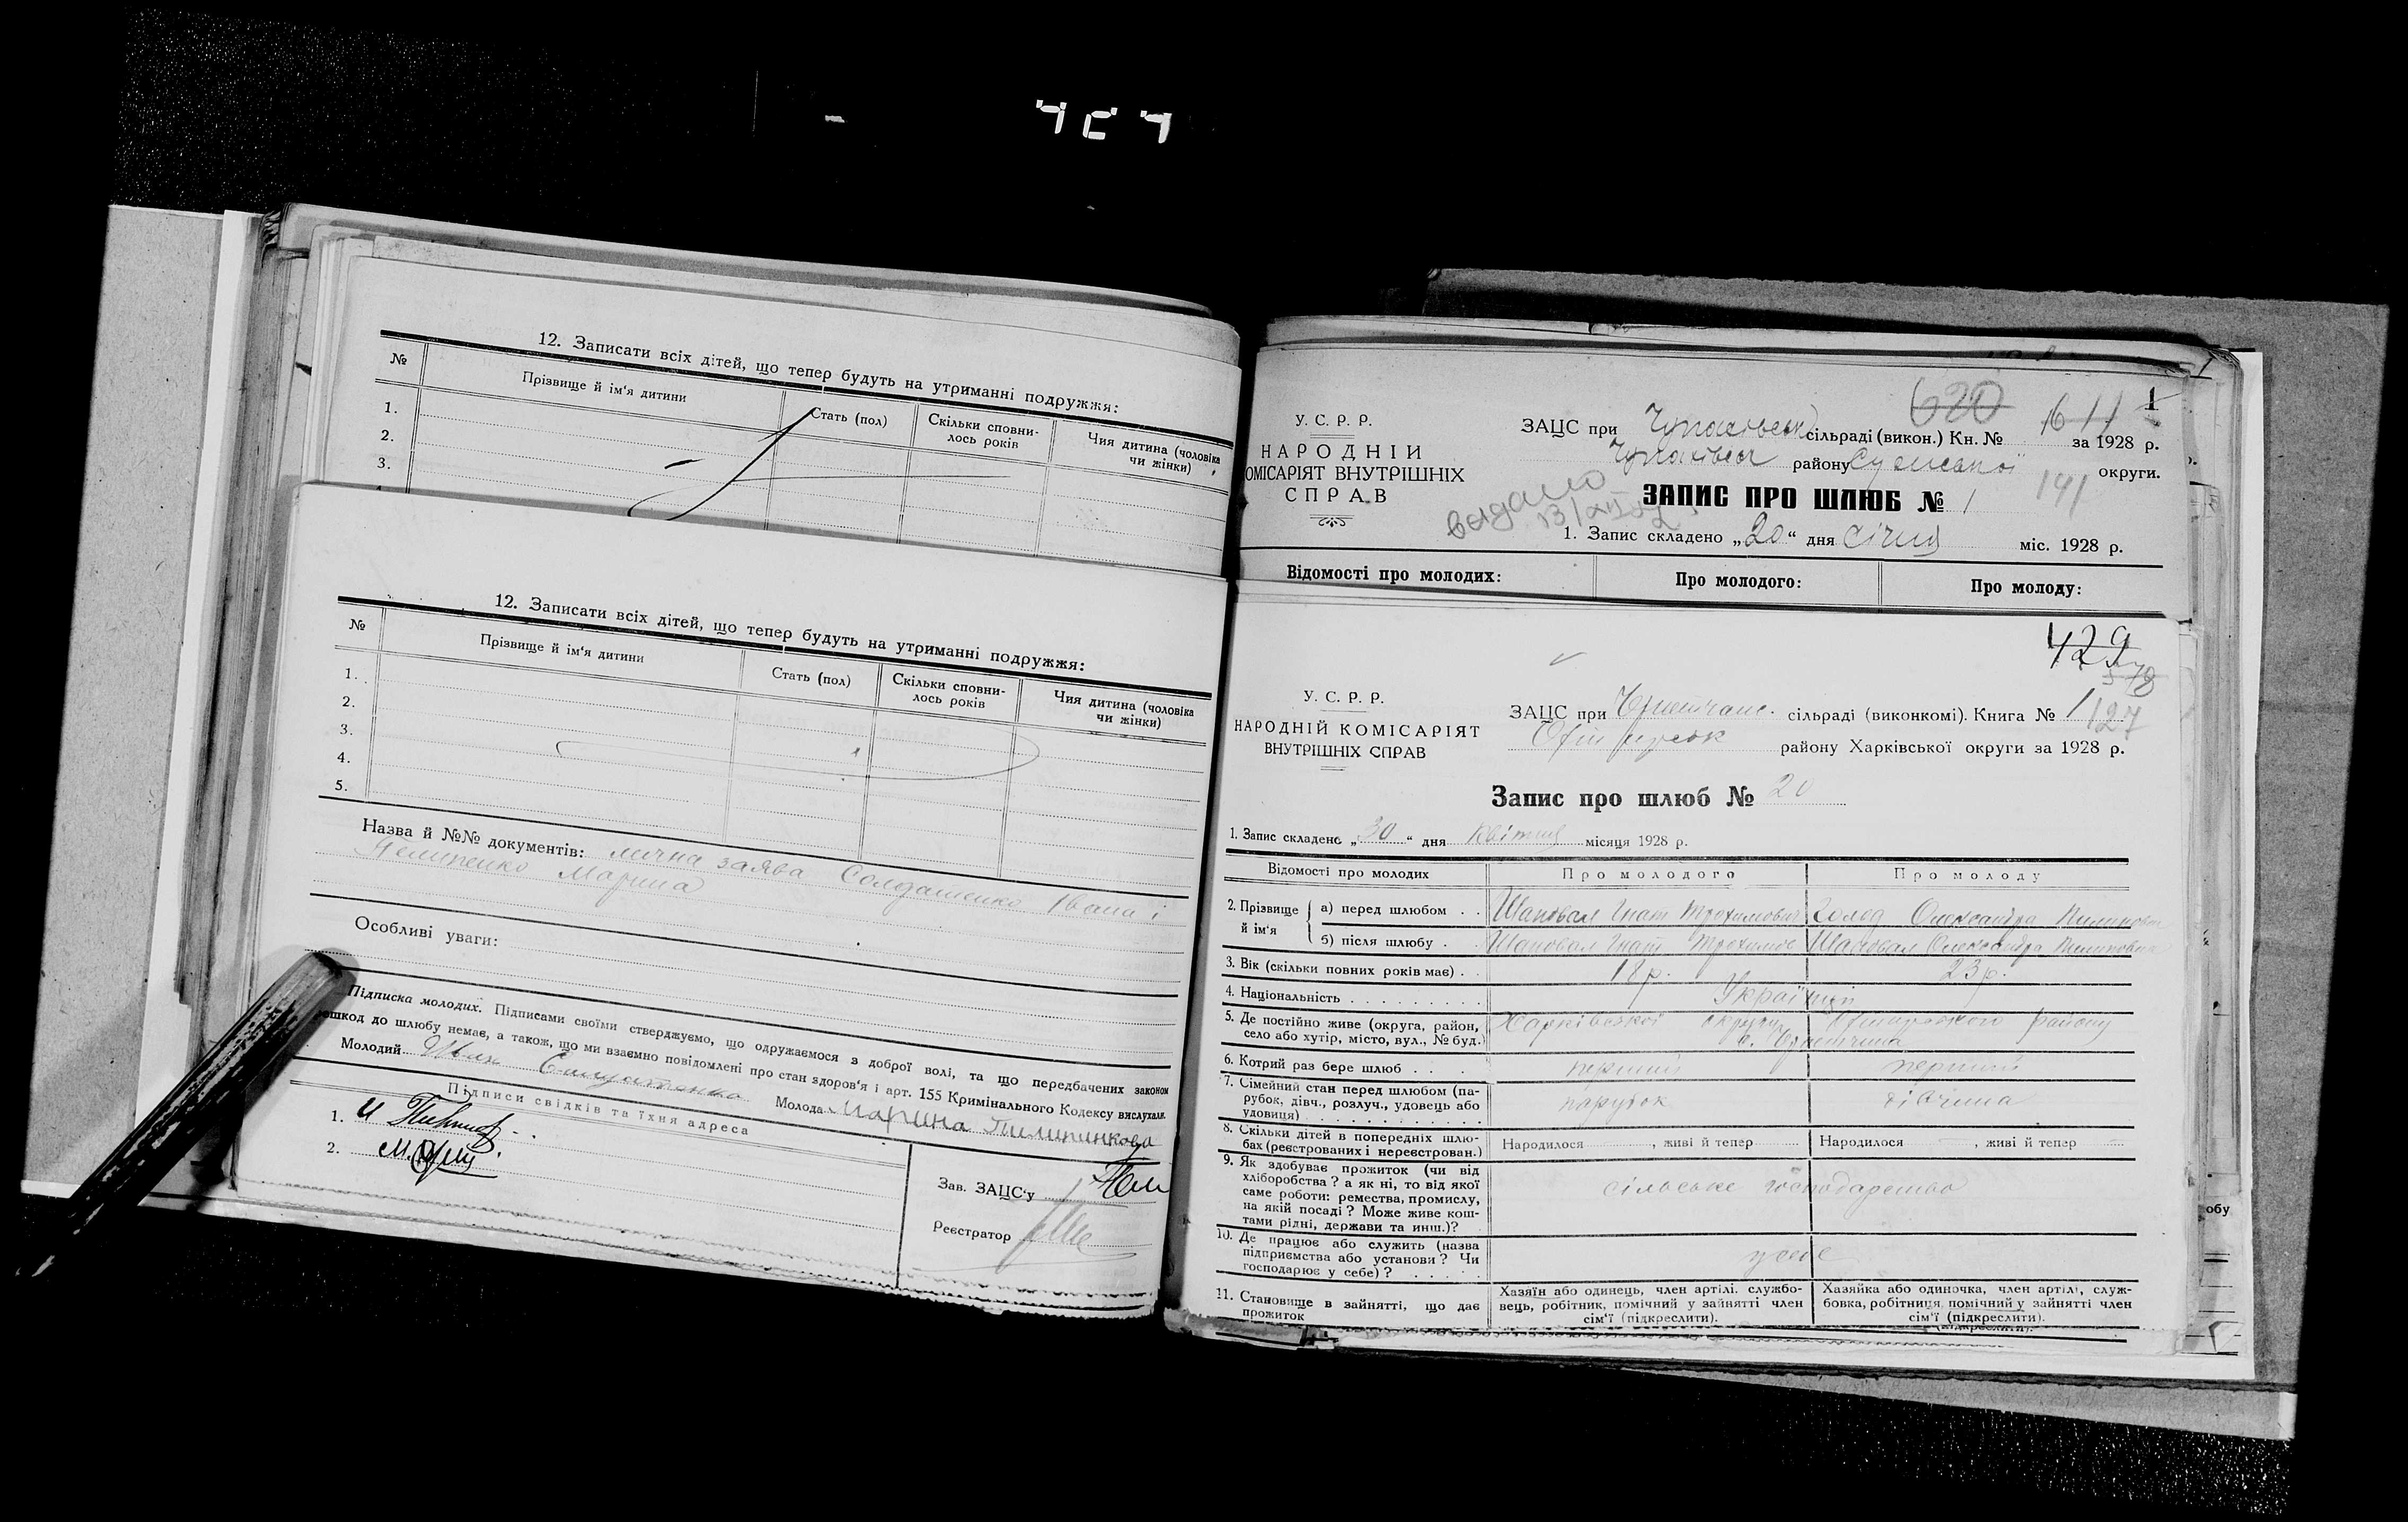 12. Записати всіх дітей, що тепер будуть на утриманні подружжя:
№ Прізвище й ім'я дитини Стать (пол) Скільки сповни-
лось років Чия дитина (чоловіка
чи жінки)
1.
2.
3.
12. Записати всіх дітей, що тепер будуть на утриманні подружжя:
№ Прізвище й ім'я дитини Стать (пол) Скільки сповни-
лось років Чия дитина (чоловіка
чи жінки)
1.
2.
3.
4.
5.
Назва й №№ документів: лична заява Солдатенко Івана і
Пелипенко Марина
Особливі уваги:
Підписка молодих. Підписами своїми стверджуємо, що одружаємося з доброї волі, та що передбачених законом
ешкод до шлюбу немає, а також, що ми взаємно повідомлені про стан здоров'я і арт. 155 Кримінального Кодексу вислухали.
Молодий Молода Марина
Підписи свідків та їхня адреса
1.
2.
Зав. ЗАЦС'у
Реєстратор
620 1611 1
У. С. Р. Р.
НАРОДНІЙ
ОМІСАРІЯТ ВНУТРІШНІХ
СПРАВ
ЗАЦС при сільраді (викон.) Кн. № за 1928 р.
району Сумської округи.
141
видано
ЗАПИС ПРО ШЛЮБ № 1
1. Запис складено „20“ дня січня міс. 1928 р.
Відомості про молодих: Про молодого: Про молоду:
429
У. С. Р. Р.
НАРОДНІЙ КОМІСАРІЯТ
ВНУТРІШНІХ СПРАВ
ЗАЦС при сільраді (виконкомі). Книга № 1 127
району Харківської округи за 1928 р.
Запис про шлюб № 20
1. Запис складено „30“ дня квітня місяця 1928 р.
Відомості про молодих Про молодого Про молоду
2. Прізвище й ім'я а) перед шлюбом . . Шаповал Гнат Трохимович Голод Олександра Пилиповна
б) після шлюбу . Шаповал Гнат Трохимов Шаповал Олександра Пилиповна
3. Вік (скільки повних років має) . . 18 р. 23 р.
4. Національність . . . . . . . . . Українці
5. Де постійно живе (округа, район,
село або хутір, місто, вул., № буд.) Харківської округи Охтирського району
с.
6. Котрий раз бере шлюб . . . . перший перший
7. Сімейний стан перед шлюбом (па-
рубок, дівч., розлуч., удовець або
удовиця) . . . . . . . . . . парубок дівчина
8. Скільки дітей в попередніх шлю-
бах (реєстрованих і нереєстрован.) Народилося , живі й тепер Народилося , живі й тепер
9. Як здобуває прожиток (чи від
хліборобства? а як ні, то від якої
саме роботи: ремества, промислу,
на якій посаді? Може живе кош-
тами рідні, держави та инш.)? сільське господарство
10. Де працює або служить (назва
підприємства або установи? Чи
господарює у себе)? . . . . . у себе
11. Становище в зайнятті, що дає
прожиток
Хазяїн або одинець, член артілі, службо-
вець, робітник, помічний у зайнятті член
сім'ї (підкреслити).
Хазяйка або одиночка, член артілі, служ-
бовка, робітниця, помічний у зайнятті член
сім'ї (підкреслити).
обу